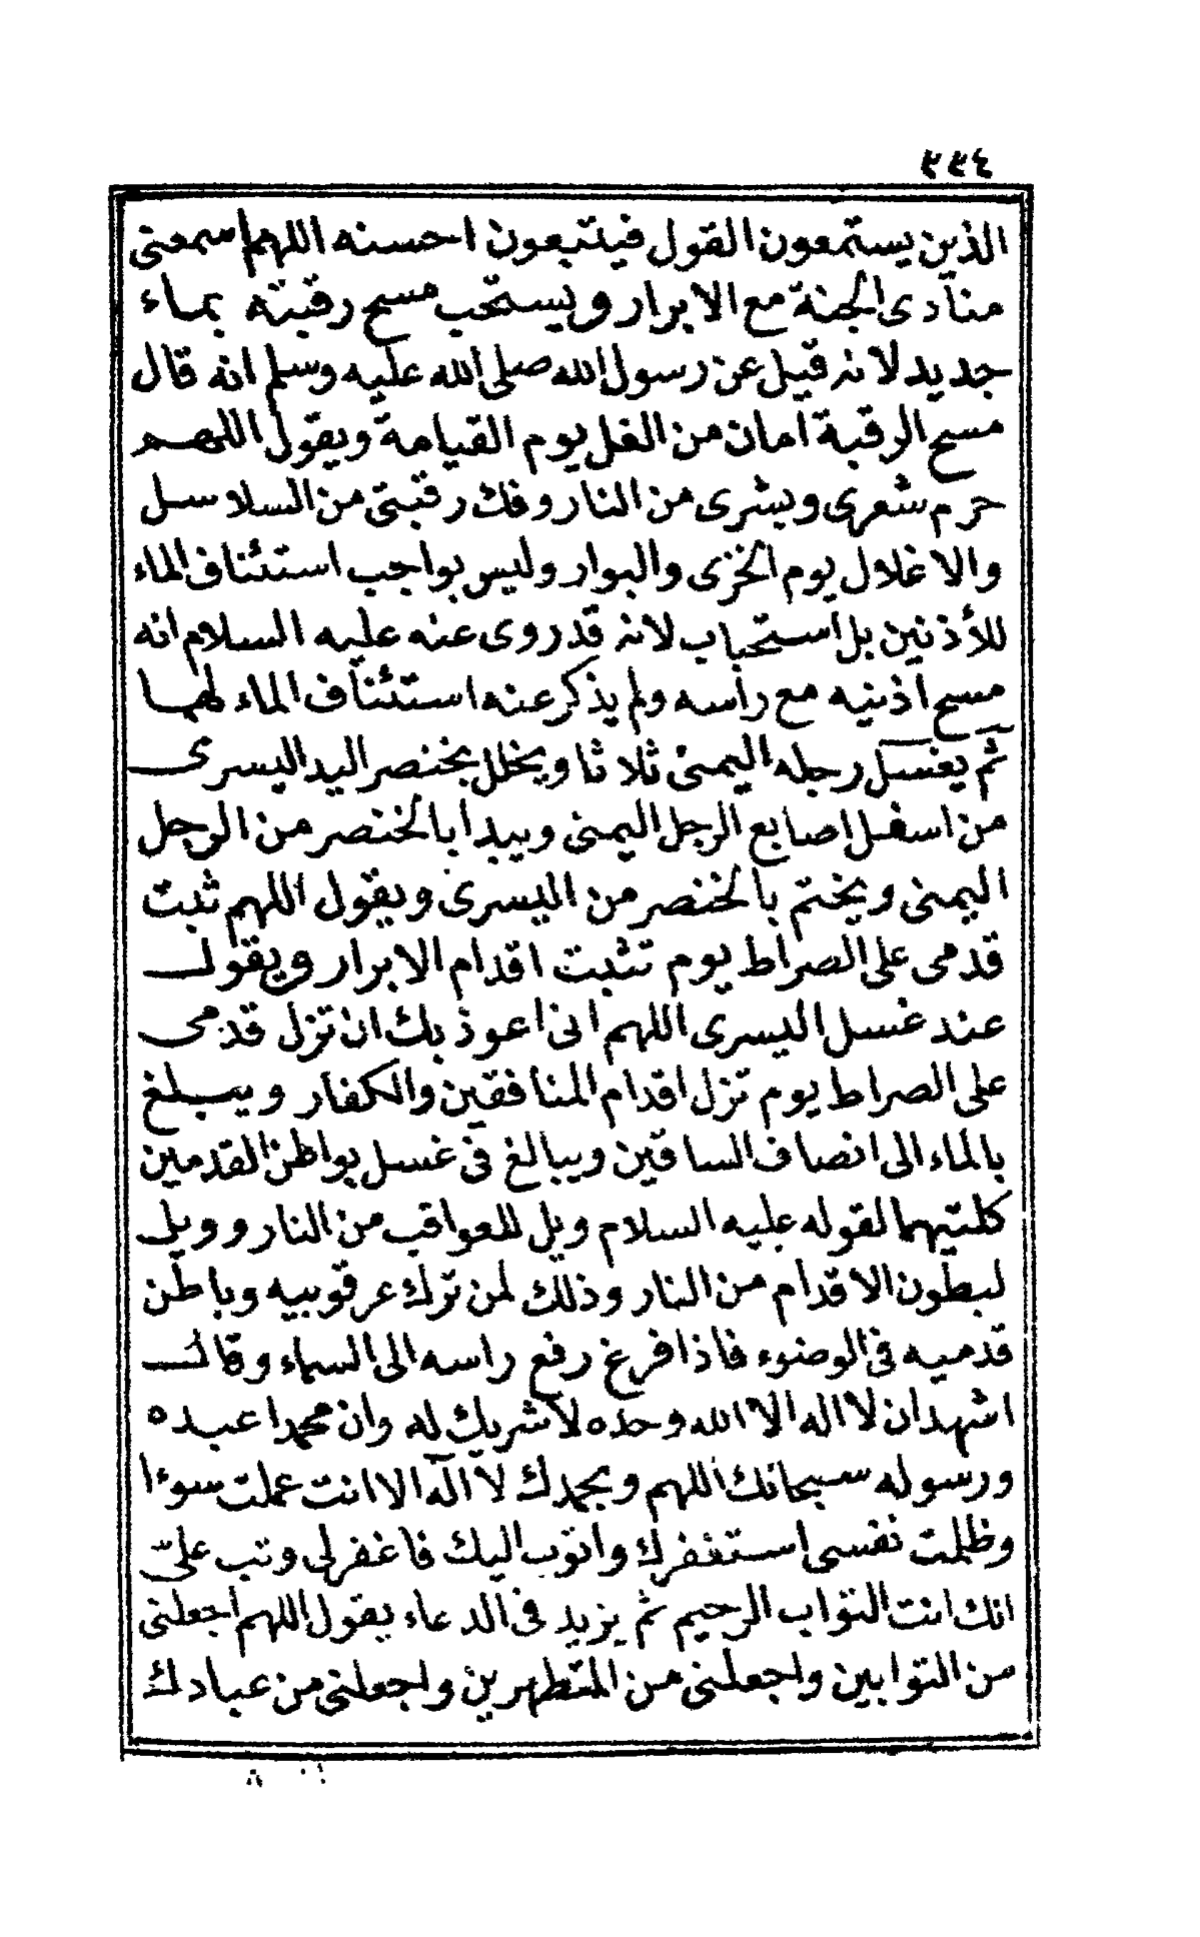 ٢٢٤
الذين يستمعون القول فيتبعون احسنه اللهم اسمعنى
منادى الجنة مع الابرار ويستحب مسح رقبته بماء
جديد لانه قيل عن رسول الله صلى الله عليه وسلم انه قال
مسح الرقبة امان من الغل يوم القيامة ويقول اللهم
حرم شعرى وبشرى من النار وفك رقبتى من السلاسل
والاغلال يوم الخزى والبوار وليس بواجب استئناف الماء
للأذنين بل استحباب لانه قد روى عنه عليه السلام انه
مسح اذنيه مع رأسه ولم يذكر عنه استئناف الماء لهما
ثم يغسل رجله اليمنى ثلاثا ويخلل بخنصر اليد اليسرى
من اسفل اصابع الرجل اليمنى ويبدأ بالخنصر من الرجل
اليمنى ويختم بالخنصر من اليسرى ويقول اللهم ثبت
قدمى على الصراط يوم تثبت اقدام الابرار ويقول
عند غسل اليسرى اللهم انى اعوذ بك ان تزل قدمى
على الصراط يوم تزل اقدام المنافقين والكفار ويبلغ
بالماء الى انصاف الساقين ويبالغ فى غسل بواطن القدمين
كلتيهما لقوله عليه السلام ويل للعواقب من النار وويل
لبطون الاقدام من النار وذلك لمن ترك عرقوبيه وباطن
قدميه فى الوضوء فاذا فرغ رفع راسه الى السماء وقال
اشهد ان لا اله الا الله وحده لا شريك له وان محمدا عبده
ورسوله سبحانك اللهم وبحمدك لا آله الا انت عملت سوءا
وظلمت نفسى استغفرك واتوب اليك فاغفر لى وتب علىّ
انك انت التواب الرحيم ثم يزيد فى الدعاء يقول اللهم اجعلنى
من التوابين واجعلنى من المتطهرين واجعلنى من عبادك